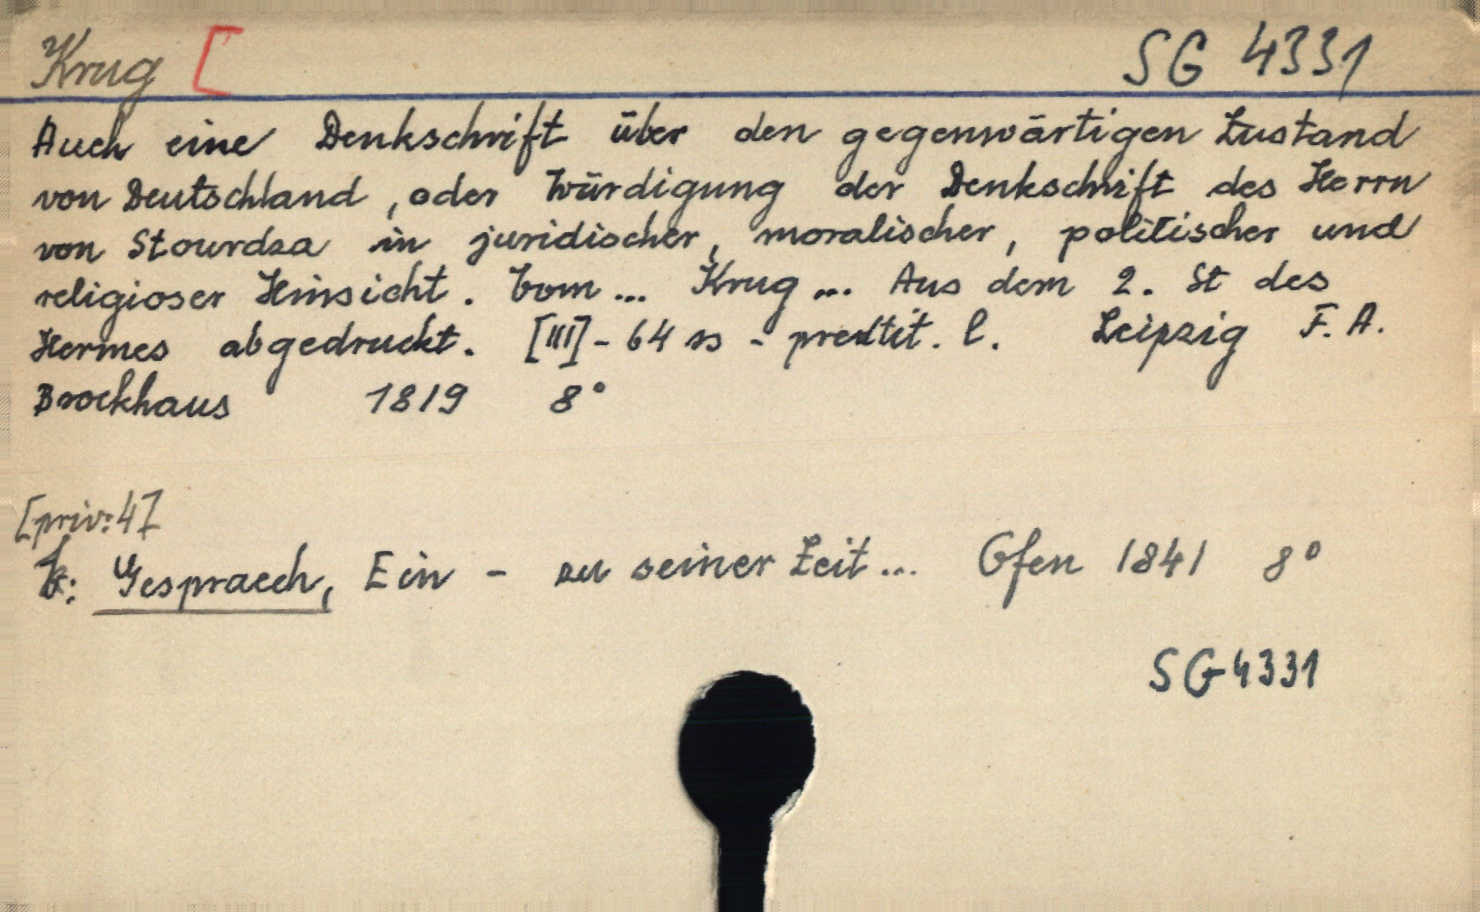 Krug [ SG 4331
Auch eine Denkschrift über den gegenwärtigen Zustand
von Deutschland, oder Würdigung der Denkschrift des Herrn
von Stourdza in juridischer, moralischer, politischer und
religioser Hinsicht. Vom... Krug... Aus dem 2. St des
Hermes abgedruckt. [III] - 64 ss - predtit. l. Leipzig F. A.
Brockhaus 1819 8°
[priv: 4]
k: Gespraech, Ein - zu seiner Zeit... Ofen 1841 8°
SG 4331